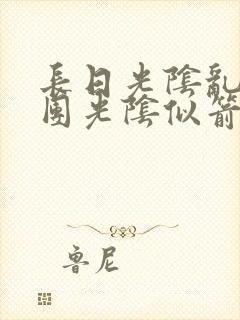 長日光陰亂
團光陰似箭
魯尼